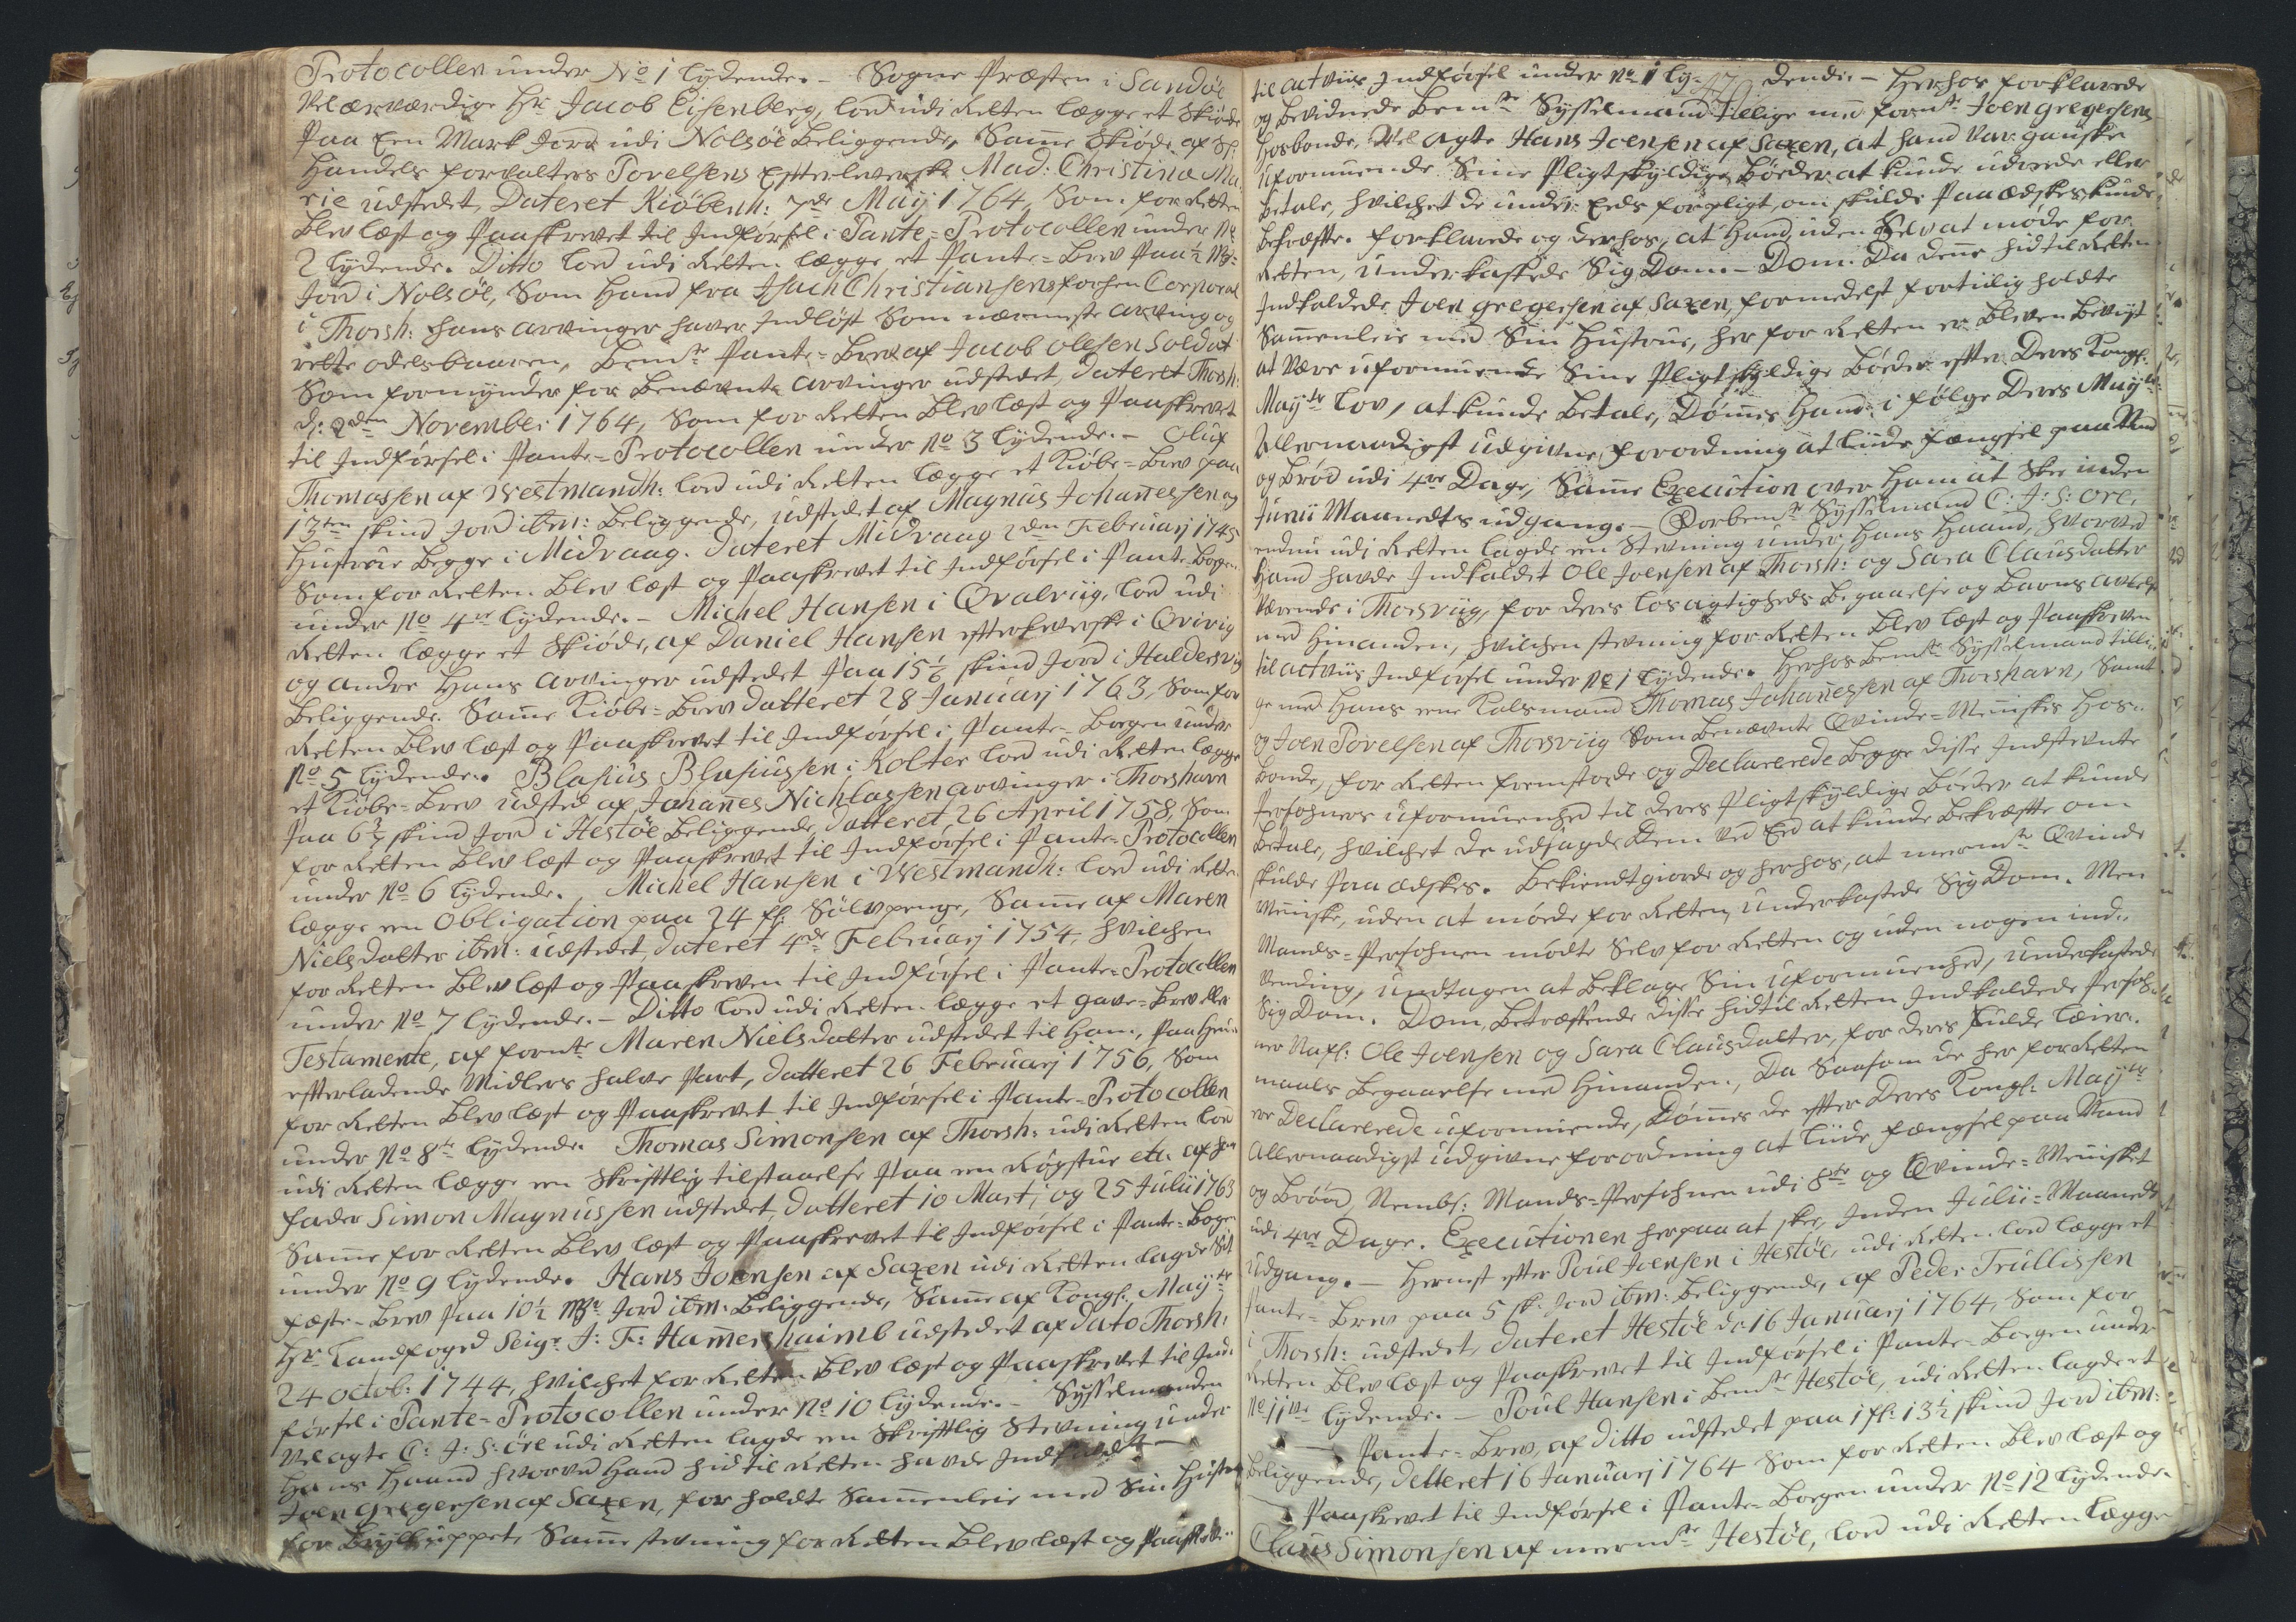 Protocollen under No 1 lydende. – Sogne Præsten i Sandöe
Velærværdige Hr Jacob Eisenberg, lod udi Retten lægge et Skiöde
Paa Een Mark Jord udi Nolsöe Beliggende, Samme Skiöde af Sl
Handels forvalters Povelsens Efterleverske Mad: Christina Ma
rie udstedet, Dateret Kiöbenh: 7de Maij 1764, Som for Retten
blev læst og Paaskrevet til Indförsel i Pante-Protocollen under No
2 lydende. Ditto lod udi Retten lægge et Pante-Brev Paa ½ Mk:
Jord i Nolsöe, Som Hand fra Isach Christiansens forhen Corporal
i Thorsh: hans arvinger haver Indlöst Som nærmeste arving og
rette odelsbaaren, bemte Pante-Brev af Jacob Olesen Soldat
Som formynder for Benævnte arvinger udstedet, dateret Thorsh:
d: 2den Novembr: 1764, Som for Retten Blev læst og Paaskrevet
til Indförsel i Pante-Protocollen under No 3 lydende. – Oluf
Thomassen af Westmandh: lod udi Retten lægge et Kiöbe-Brev paa
13ten skind Jord ibm: Beliggende, udstedet af Magnus Johannessen og
Hustrue begge i Midvaag. dateret Midvaag 2den Februarj 1745
Som for Retten Blev læst og Paaskrevet til Indförsel i Pante bogen
under No 4re lydende. – Michel Hansen i Qvalviig, lod udi
Retten lægge et Skiöde, af Daniel Hansen efterleverske i Qvivig
og andre Hans arvinger udstedet Paa 15 1/6 skind Jord i Haldersvig
beliggende. Samme Kiöbe-Brev datteret 28 Januarj 1763, Som for
Retten Blev læst og Paaskrevet til Indförsel i Pante-Bogen under
No 5 lydende. Blasius Blasiussen i Kolter lod udi Retten lægge
et Kiöbe-Brev udsted af Johannes Nichlassen arvinger i Thorshavn
Paa 6⅔ skind Jord i Hestöe Beliggende, datteret 26 April 1758, Som
for Retten Blev læst og Paaskrevet til Indförsel i Pante-Protocollen
under No 6 lydende. Michel Hansen i Westmandh: lod udi Rette
lægge een Obligation paa 24 fl: Sölvpenge, Samme af Maren
Nielsdatter ibm: udstedet, dateret 4de Februarj 1754, hvilchen
for Retten Blev læst og Paaskreven til Indförsel i Pante-Protocollen
under No 7 lydende. – Ditto lod udi Retten lægge et gave-Brev eller
Testamente, af fornte Maren Nielsdatter udstedet til Ham, Paa Hen-
efterladende Midlers halve Part, datteret 26 Februarj 1756, Som
for Retten Blev læst og Paaskrevet til Indförsel i Pante-Protocollen
under No 8te lydende. Thomas Simonsen af Thorsh: udi Retten lod
udi Retten lægge een Skriftlig tilstaaelse Paa een Rögstue etc. af hans
fader Simon Magnussen udstedet, datteret 10 Martj og 25 Julii 1763
Samme for Retten Blev læst og Paaskrevet til Indförsel i Pante-Bogen
under No 9 lydende. Hans Joensen af Saxen udi Retten lagde Sit
fæste-Brev Paa 10½ Mk Jord ibm: Beliggende, Samme af Kongl: Mayts
Hr Landfoged Seigr J: F: Hammershaimb udstedet af dato Thorsh:
24 octob: 1744, hvilchet for Retten Blev læst og Paaskrevet til Ind-
försel i Pante-Protocollen under No 10 lydende. – Sysselmanden
Velagte C: J: S: öre udi Retten lagde een Skriftlig Stevning under
Hans Haand hvorved Hand hid til Retten havde Indkaldet
Joen Gregersen af Saxen, for holdte Sammenleie med Sin Hustrue
for Brylluppet, Samme Stevning for Retten Blev læst og Paaskreven
til act viis Indförsel under No 1 ly- dende. – Herhos forklarede
og bevidnede bemte Sysselmand tillige med fornte Joen gregersens
Hosbonde, Vel agte Hans Joensen af Saxen, at hand var ganske
uformuende Sine Pligtskyldige Böder at kunde udrede eller
betale, hvilchet de under Eeds forpligt, om skulde Paa ædskes, kunde
bekræfte. forklarede og derhos, at Hand, uden Selv at möde for
Retten, underkastede Sig Dom. – Dom. Da denne hid til Retten
Indkaldede Joen gregersen af Saxen, formedelst fortiilig holdte
Sammenleie med Sin Hustrue, her for Retten er Bleven Bevist
at være uformuende Sine Pligtskyldige Böder efter Deres Kongl:
Mayts Lov, at kunde betale, Dömmes Hand i fölge Deres Mayts
Allernaadigst udgivne forordning at liide fængsel paa Vand
og Bröd udi 4re Dage, Samme Execution over Ham at Skee inden
Junii Maanedts udgang. – Ovorbemte Sysselmand C: J: S: öre,
endnu udi Retten lagde een Stevning under Hans Haand, hvorved
Hand havde Indkaldet Ole Joensen af Thorsh: og Sara Clausdatter
værende i Thorsviig, for deres losagtigheds begaaelse og Barns avlelse
med hinanden, hvilchen Stevning for Retten Blev læst og Paaskreven
til act viis Indförsel under No 1 lydende. Herhos bemte Sysselmand tilli-
ge med Hans eene Kalsmand Thomas Johannessen af Thorshavn, Samt
og Joen Povelsen af Thorsviig Som benævnte Qvinde-Menniskes Hos-
bonde, for Retten fremstode og Declarerede begge disse Indstevnte
Persohners uformuenhed til deres Pligtskyldige böder at kunde
betale, hvilchet de udsagde dem ved Eed at kunde bekræfte om
skulde Paa ædskes. Bekiendtgiorde og herhos, at meermte Qvinde
Menniske, uden at möde for Retten, underkastede Sig Dom. Men
Mands-Persohnen mödte Selv for Retten og uden nogen ind-
vending, undtagen at beklage Sin uformuenhed, underkastede
Sig Dom. Dom, betræffende disse hid til Retten Indkaldede Persoh-
ner Nafl: Ole Joensen og Sara Clausdatter, for deres fulde Leier-
maals begaaelse med hinanden, Da Saasom de her for Retten
er Declarerede uformuende, Dömmes de efter Deres Kongl: Mayts
Allernaadigst udgivne forordning at liide fængsel paa Vand
og bröd, Nembl: Mands-Persohnen udi 8te og Qvinde-Mennisket
udi 4re Dage. Executionen herpaa at skee, Inden Julii-Maanedts
udgang. – Hernest efter Poul Joensen i Hestöe, udi Retten lod lægge et
Pante-Brev paa 5 sk: Jord ibm: beliggende, af Peder Trullissen
i Thorsh: udstedet, dateret Hestöe d: 16 Januarj 1764, Som for
Retten Blev læst og Paaskrevet til Indförsel i Pante-Bogen under
No 11ve lydende. – Poul Hansen i bemte Hestöe, udi Retten lagde et
Pante-Brev, af ditto udstedet paa 1 fl: 13½ skind Jord ibm:
beliggende, detteret 16 Januarj 1764 Som for Retten Blev læst og
Paaskrevet til Indförsel i Pante-Bogen under No 12 lydende.
Claus Simonsen af meermte Hestöe, lod udi Retten lægge